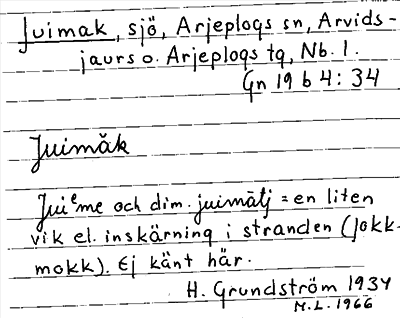 Juimak, sjö, Arjeplogs sn, Arvids-
jaurs o. Arjeplogs tg, Nb. l.
Gn 19 b 4:34
Juimăk
Juiᵉme och dim. juimātj = en liten
vik el. inskärning i stranden (Jokk-
mokk). Ej känt här.
H. Grundström 1934
M.L. 1966